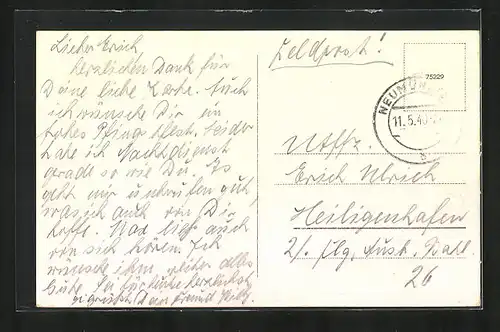 Lieber Erich
herzlichen Dank für
Deine liebe Karte. Auch
ich wünsche Dir ein
frohes Pfingstfest. Leider
habe ich Nachtdienst
gerade so wie Du. Es
geht mir unberufen gut,
was ich auch von Dir
hoffe. Max ließ auch
von sich hören. Ich
wünsche ihm weiter alles
Gute. Sei für heute herzlichst
gegrüßt Dein Freund Willy.
Feldpost!
75229
NEUMÜN
11.5.40
Uffz.
Erich Ulrich
Heiligenhafen
2/. Flg. Ausb. Batl.
26